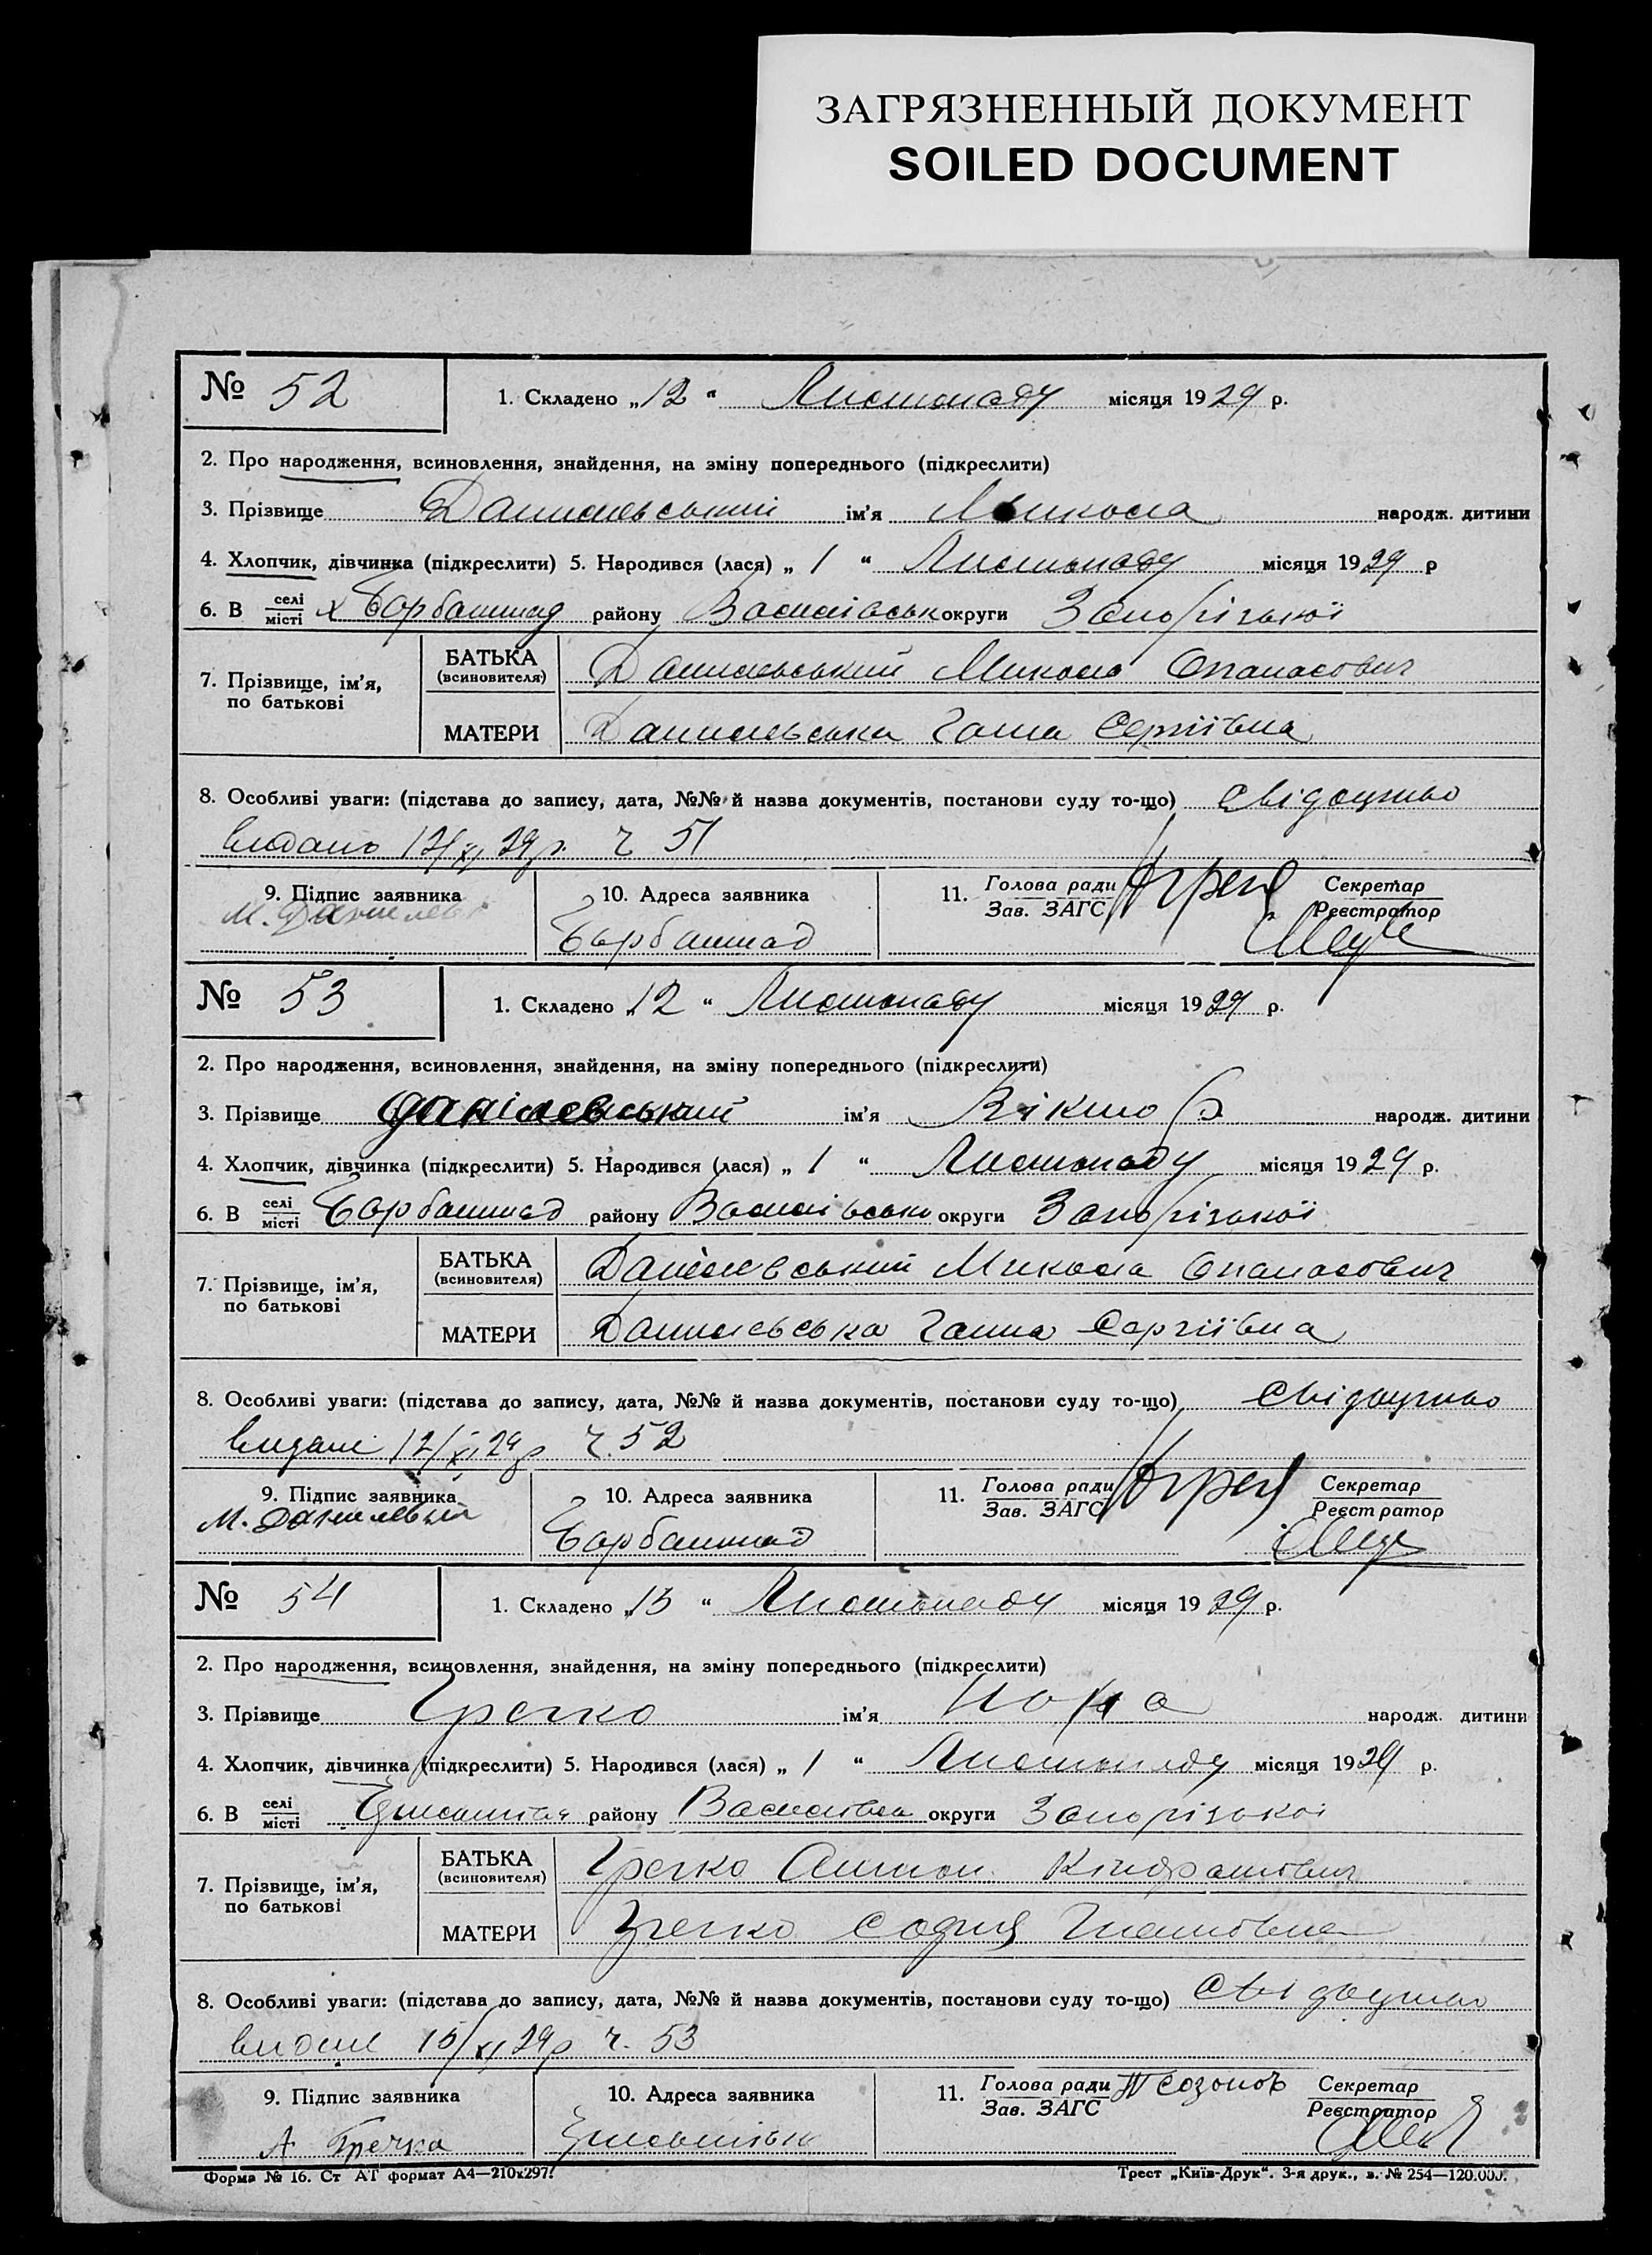 ЗАГРЯЗНЕННЫЙ ДОКУМЕНТ
SOILED DOCUMENT
№ 52
1. Складено „12“ Листопаду місяця 1929 р.
2. Про народження, всиновлення, знайдення, на зміну попереднього (підкреслити)
3. Прізвище Данилевський ім'я Микола народж. дитини
4. Хлопчик, дівчинка (підкреслити) 5. Народився (лася) „1“ Листопаду місяця 1929 р
6. В селі місті х Барбаштад району Василівськ округи Запорізької
7. Прізвище, ім'я, по батькові
БАТЬКА (всиновителя) Данилевський Микола Опанасович
МАТЕРИ Данилевська Ганна Сергіївна
8. Особливі уваги: (підстава до запису, дата, №№ й назва документів, постанови суду то-що) Свідоцтво
видано 12/XI 29 р. ч 51
9. Підпис заявника
М. Данилевс
10. Адреса заявника
Барбаштад
11. Голова ради
Зав. ЗАГС
Секретар
Реєстратор
№ 53
1. Складено „12“ Листопаду місяця 1929 р.
2. Про народження, всиновлення, знайдення, на зміну попереднього (підкреслити)
3. Прізвище Данілевський ім'я Віктор народж. дитини
4. Хлопчик, дівчинка (підкреслити) 5. Народився (лася) „1“ Листопаду місяця 1929 р.
6. В селі місті Барбаштад району Василівсько округи Запорізької
7. Прізвище, ім'я, по батькові
БАТЬКА (всиновителя) Данілевський Микола Опанасович
МАТЕРИ Данилевська Ганна Сергіївна
8. Особливі уваги: (підстава до запису, дата, №№ й назва документів, постанови суду то-що) Свідоцтво
видане 12/XI 29 р ч. 52
9. Підпис заявника
М. Данилевський
10. Адреса заявника
Барбаштад
11. Голова ради
Зав. ЗАГС
Секретар
Реєстратор
№ 54
1. Складено „15“ Листопаду місяця 1929 р.
2. Про народження, всиновлення, знайдення, на зміну попереднього (підкреслити)
3. Прізвище Гречко ім'я народж. дитини
4. Хлопчик, дівчинка (підкреслити) 5. Народився (лася) „1“ Листопаду місяця 1929 р.
6. В селі місті району Василівка округи Запорізької
7. Прізвище, ім'я, по батькові
БАТЬКА (всиновителя) Гречко Антон Кіндратович
МАТЕРИ Гречко София
8. Особливі уваги: (підстава до запису, дата, №№ й назва документів, постанови суду то-що) Свідоцтво
видане 15/XI 29 р ч. 53
9. Підпис заявника
А Гречка
10. Адреса заявника
11. Голова ради Созонов
Зав. ЗАГС
Секретар
Реєстратор
Форма № 16. Ст АТ формат А4—210х297.
Трест „Київ-Друк“. 3-я друк., з. № 254—120.000.